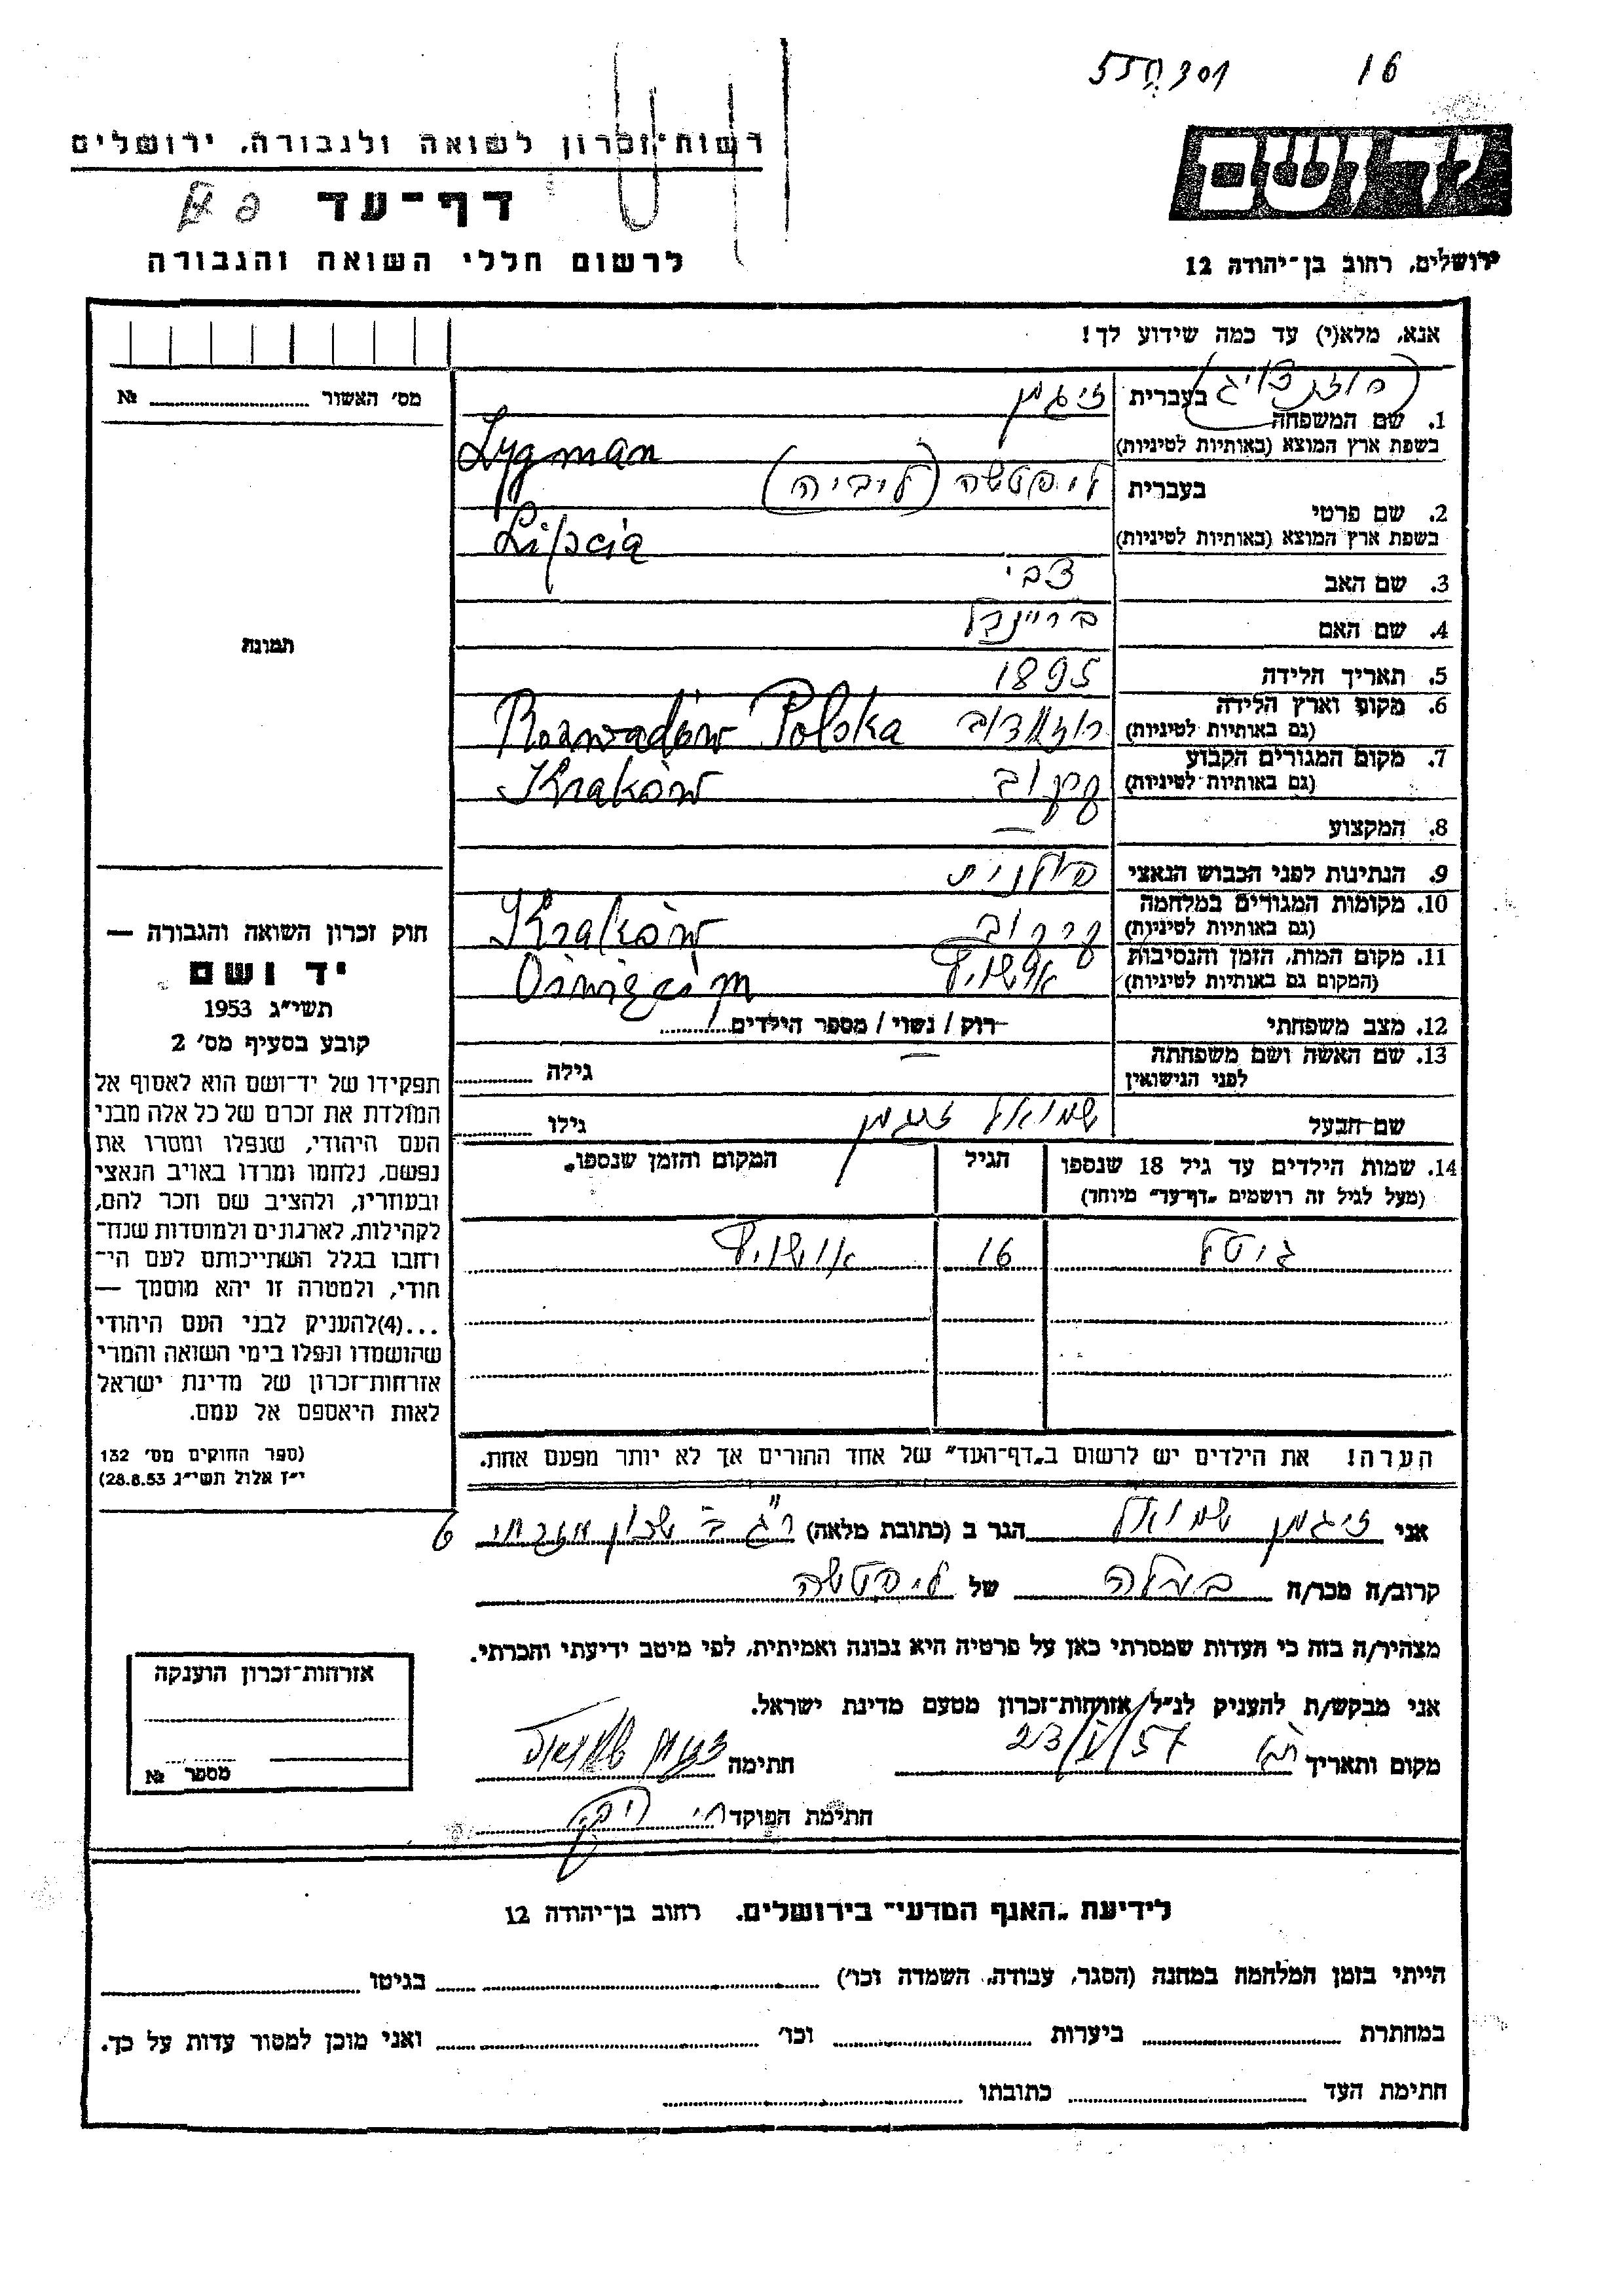 16
301
רשות־זכרון לשואה ולגבורה, ירושלים
יד ושם
דף־עד
לרשום חללי השואה והגבורה
ירושלים, רחוב בן־יהודה 12
אנא, מלא(י) עד כמה שידוע לך!
מס׳ האשור № 
1. שם המשפחה בעברית זיגמן
בשפת ארץ המוצא (באותיות לטיניות) Zygman
2. שם פרטי בעברית ליפטשה (ליביה)
בשפת ארץ המוצא (באותיות לטיניות) Lipcia
3. שם האב צבי
4. שם האם בריינדל
5. תאריך הלידה 1895
6. מקום וארץ הלידה (גם באותיות לטיניות) רוזוודוב Rozwadów Polska
7. מקום המגורים הקבוע (גם באותיות לטיניות) קרקוב Kraków
8. המקצוע —
9. הנתינות לפני הכבוש הנאצי פולנית
10. מקומות המגורים במלחמה (גם באותיות לטיניות) קרקוב Kraków
11. מקום המות, הזמן והנסיבות (המקום גם באותיות לטיניות) אושויץ Oświęcim
12. מצב משפחתי רוק / נשוי / מספר הילדים
13. שם האשה ושם משפחתה לפני הנישואין — גילה
שם הבעל שמואל זיגמן גילו
14. שמות הילדים עד גיל 18 שנספו (מעל לגיל זה רושמים „דף־עד״ מיוחד) הגיל המקום והזמן שנספו.
גיטל 16 אושויץ
הערה! את הילדים יש לרשום ב„דף־העד״ של אחד ההורים אך לא יותר מפעם אחת.
תמונה
חוק זכרון השואה והגבורה —
יד ושם
תשי״ג 1953
קובע בסעיף מס׳ 2
תפקידו של יד־ושם הוא לאסוף אל
המולדת את זכרם של כל אלה מבני
העם היהודי, שנפלו ומסרו את
נפשם, נלחמו ומרדו באויב הנאצי
ובעוזריו, ולהציב שם וזכר להם,
לקהילות, לארגונים ולמוסדות שנח־
רבו בגלל השתייכותם לעם הי־
הודי, ולמטרה זו יהא מוסמך —
...(4) להעניק לבני העם היהודי
שהושמדו ונפלו בימי השואה והמרי
אזרחות־זכרון של מדינת ישראל
לאות היאספם אל עמם.
(ספר החוקים מס׳ 132
י״ז אלול תשי״ג 28.8.53)
אני זיגמן שמואל הגר ב (כתובת מלאה) ר״ג שכון מזרחי 6
קרוב/ה מכר/ה בעלה של ליפטשה
מצהיר/ה בזה כי העדות שמסרתי כאן על פרטיה היא נכונה ואמיתית, לפי מיטב ידיעתי והכרתי.
אני מבקש/ת להעניק לנ״ל אזרחות־זכרון מטעם מדינת ישראל.
מקום ותאריך 23/V/57 חתימה זיגמן שמואל
חתימת הפוקד
אזרחות־זכרון הוענקה
מספר №
לידיעת „האגף המדעי״ בירושלים. רחוב בן־יהודה 12
הייתי בזמן המלחמה במחנה (הסגר, עבודה, השמדה וכו׳) בגיטו
במחתרת ביערות וכו׳ ואני מוכן למסור עדות על כך.
חתימת העד כתובתו